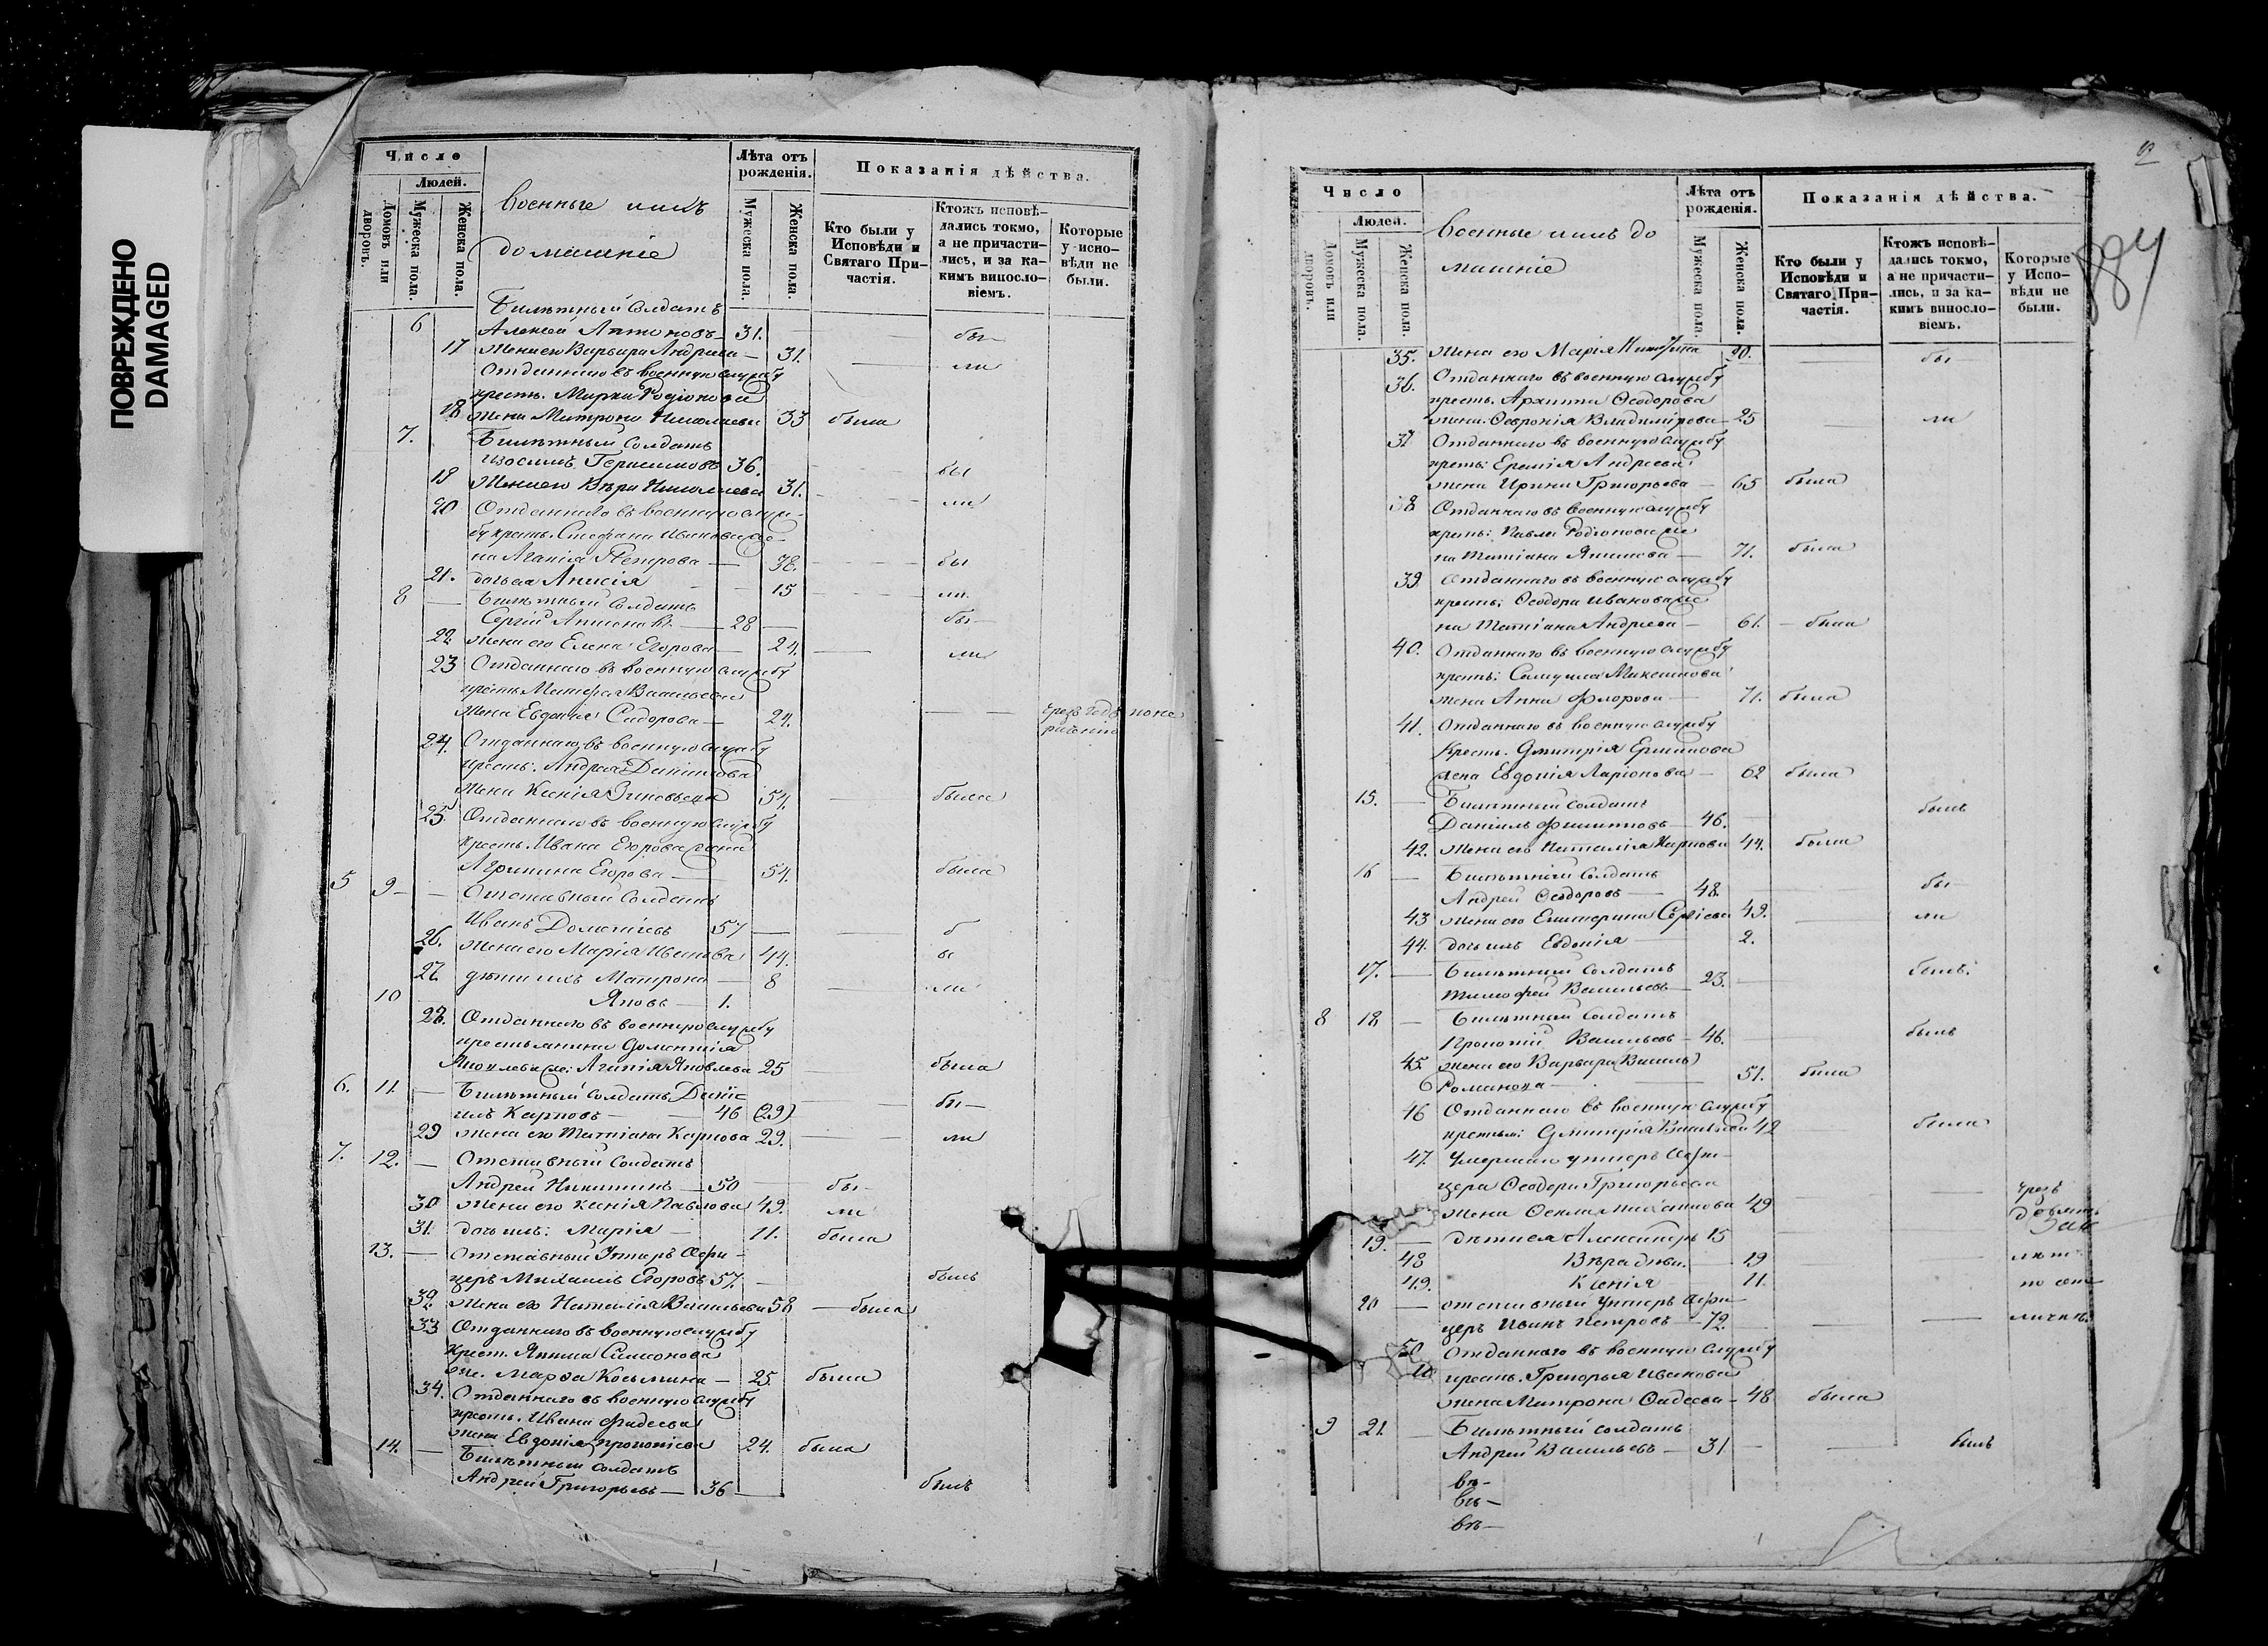 ПОВРЕЖДЕНО
DAMAGED
Число
Людей.
Домовъ или дворовъ.
Мужеска пола.
Женска пола.
Военные ихъ
домашніе
Лѣта отъ рожденія.
Мужеска пола.
Женска пола.
Показанія дѣйства.
Кто были у Исповѣди и Святаго Причастія.
Ктожъ исповѣдались токмо, а не причастились, и за какимъ винословіемъ.
Которые у исповѣди не были.
Билѣтный Солдатъ
6 Алексей Антоновъ 31. бы
17 Жена его Варвара Андреева 31. ли
Отданнаго въ военную службу
крестъ. Марка Родіонова
18 жена Матрона Николаева 33 была
7. Билѣтный Солдатъ
Изосимъ Герасимовъ 36. бы
19 Жена его Вѣра Николаева 31. ли
20 Отданнаго въ военную служ-
бу крестъ. Стефана Иванова же-
на Агапія Петрова 38. бы
21. дочь ея Анисія 15 ли
8 Билѣтный Солдатъ
Сергій Антоновъ 28 бы
22. жена его Елена Егорова 24. ли
23 Отданнаго въ военную службу
крестъ. Матфея Васильева
жена Евдокія Сидорова 24. чрезъ годъ по не
радѣнію
24. Отданнаго въ военную службу
крестъ. Андрея Данилова
жена Ксенія Зиновьева 54. была
25. Отданнаго въ военную службу
крестъ. Ивана Егорова жена
Агрипина Егорова 54. была
5 9 Отставный Солдатъ
Иванъ Дометіевъ 57 б
26. жена его Марія Иванова 44. ы
27. дѣти ихъ Матрона 8 ли
10 Яковъ 1.
28. Отданнаго въ военную службу
крестьянина Дометія
Яковлева же: Агапія Яковлева 25 была
6. 11. Билѣтный Солдатъ Дани-
илъ Карповъ 46 (29) бы
29 жена его Татіана Карпова 29. ли
7. 12. Отставный Солдатъ
Андрей Никитинъ 50 бы
30 жена его Ксенія Павлова 49. ли
31. дочь ихъ: Марія 11. была
13. Отставный Унтеръ Офи-
церъ Михаилъ Егоровъ 57. былъ
32. жена его Наталія Васильева 58 была
33 Отданнаго въ военную службу
крест. Якима Симонова
же. Марѳа Косьмина 25. была
34. Отданнаго въ военную службу
крестъ. Ивана Фадеева
жена Евдокія Прокопіева 24. была
14. Билѣтный солдатъ
Андрей Григорьевъ 36 былъ
9
894
Число
Людей.
Домовъ или дворовъ.
Мужеска пола.
Женска пола.
Военные ихъ до
машніе
Лѣта отъ рожденія.
Мужеска пола.
Женска пола.
Показанія дѣйства.
Кто были у Исповѣди и Святаго Причастія.
Ктожъ исповѣдались токмо, а не причастились, и за какимъ винословіемъ.
Которые у Исповѣди не были.
35. жена его Марія Никитина 20. бы
36. Отданнаго въ военную службу
крестъ. Архипа Ѳеодорова
жена. Ѳевронія Владимірова 25 ли
37 Отданнаго въ военную службу
крест: Еремія Андреева
жена Ирина Григорьева 65 была
38 Отданнаго въ военную службу
крест: Павла Родіонова же
на Татіана Якимова 71. была
39 Отданнаго въ военную службу
крест: Ѳеодора Иванова же
на Татіана Андреева 61. была
40. Отданнаго въ военную службу
крест: Самуила Максимова
жена Анна Флорова 71. была
41. Отданнаго въ военную службу
Крестъ. Дмитрія Ермилова
жена Евдокія Ларіонова 62 была
15. Билѣтный Солдатъ
Даніилъ Филиповъ 46. былъ
42. жена его Наталія Карпова 44. была
16 Билѣтный Солдатъ
Андрей Ѳеодоровъ 48. бы
43 жена его Екатерина Сергіева 49. ли
44. дочь ихъ Евдокія 2.
17. Билѣтный Солдатъ
Тимофей Васильевъ 23. былъ.
8 18 Билѣтный Солдатъ
Прокопій Васильевъ 46. былъ
45. жена его Варвара (Василь)
Романова 51. была
46 Отданнаго въ военную службу
крестьян: Дмитрія Васильева 42 была
47. Умершаго унтеръ Офи-
цера Ѳеодора Григорьева
жена Ѳекла 49 чрезъ
девять
19. дѣти ея Александръ 15
48 Вѣра дѣви. 19 лѣт
49. Ксенія 11. по от
20 отставный Унтеръ Офи-
церъ Иванъ Петровъ 72. личкѣ.
50 Отданнаго въ военную службу
крестъ. Григорья Иванова
жена Матрона Фадеева 48 была
9 21. Билѣтный солдатъ
Андрей Васильевъ 31 былъ
въ
въ
въ